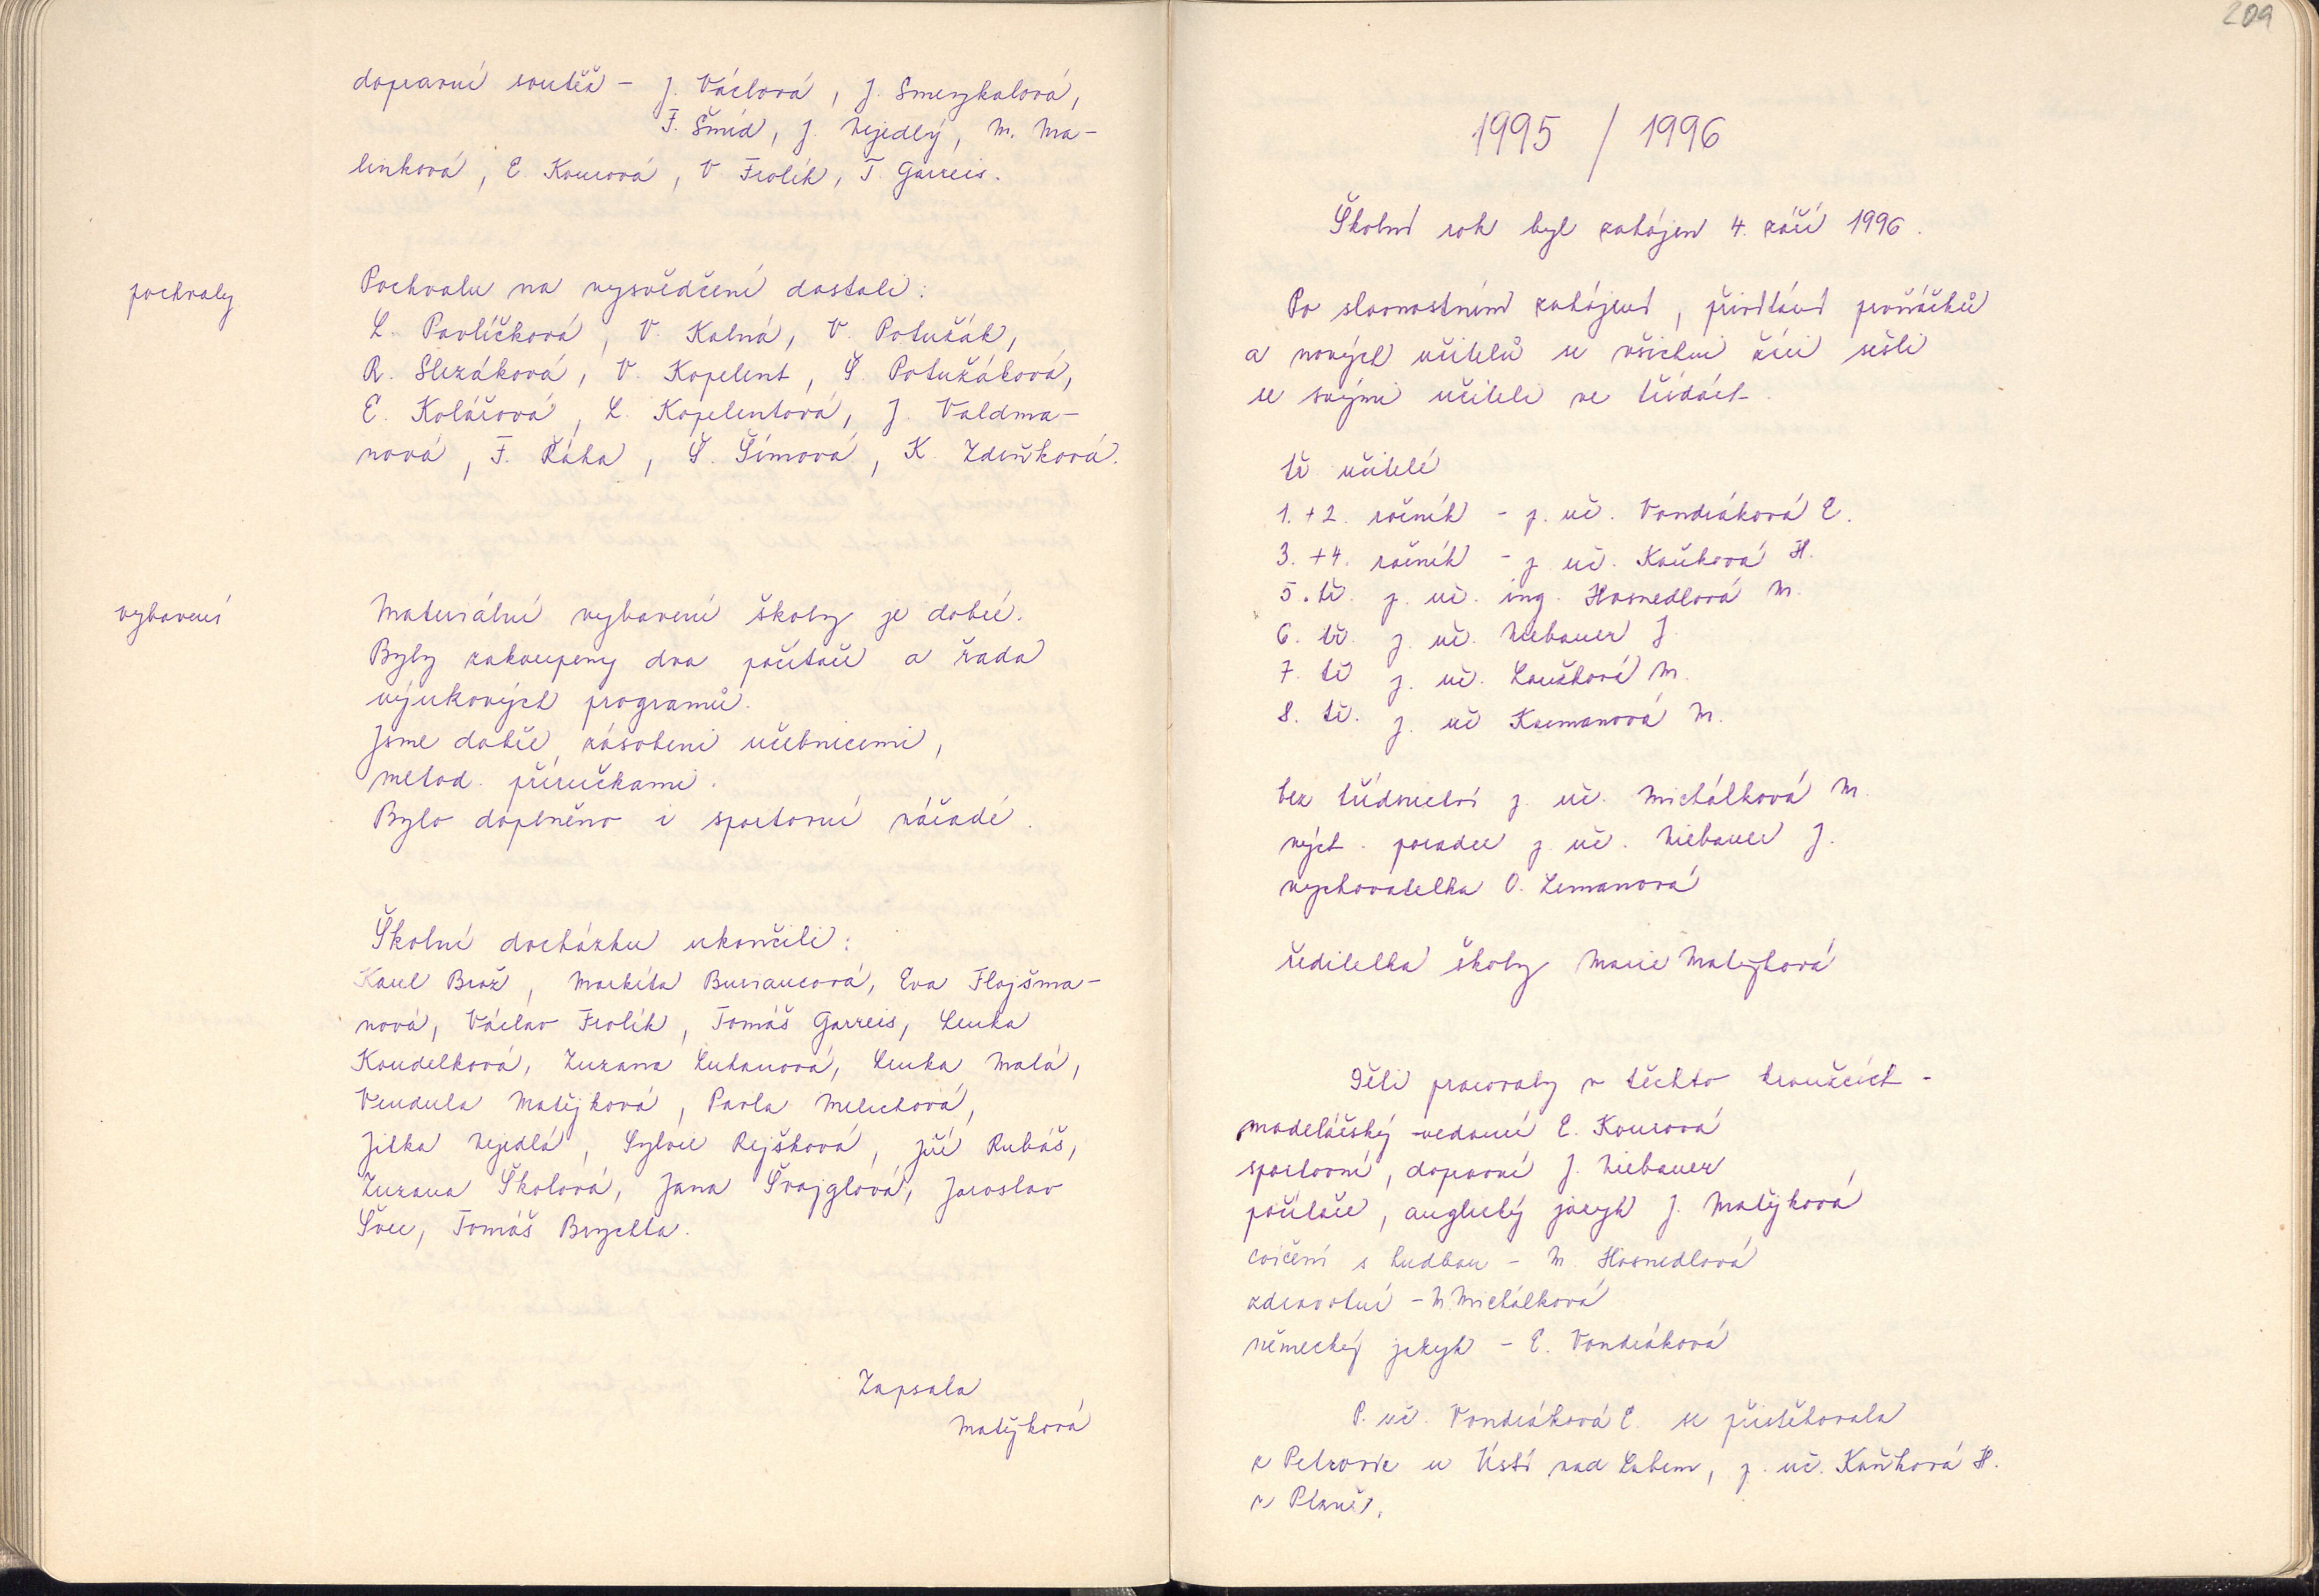 dopravní soutěž - J. Václová, J. Smeykalová,
F. Šmíd, J. Nejedlý, M. Ma-
linková, E. Kourová, V. Frolík, T. Garreis.
pochvaly
Pochvalu na vysvědčení dostali:
L. Pavlíčková, V. Kalná, V. Potužák,
R. Slezáková, V. Kopelent, Š. Potužáková,
E. Kolářová, L. Kopelentová, J. Valdma-
nová, F. Řáha, Š. Šímová, K. Zdeňková.
vybavení
Materiální vybavení školy je dobré.
Byly zakoupeny dva počítače a řada
výukových programů.
Jsme dobře zásobeni učebnicemi,
metod. příručkami.
Bylo doplněno i sportovní nářadí.
Školní docházku ukončili:
Karel Brož, Markéta Buriancová, Eva Flajšma-
nová, Václav Frolík, Tomáš Garreis, Lenka
Koudelková, Zuzana Luhanová, Lenka Malá,
Vendula Matějková, Pavla Melichová,
Jitka Nejedlá, Sylvie Rejšková, Jiří Rubáš,
Zuzana Školová, Jana Švajglová, Jaroslav
Švec, Tomáš Brychta.
Zapsala
Matějková
209
1995 / 1996
Školní rok byl zahájen 4. září 1996.
Po slavnostním zahájení, přivítání prvňáčků
a nových učitelů se všichni žáci sešli
se svými učiteli ve třídách.
tř. učitelé
1. + 2. ročník - p. uč. Vondráková E.
3. + 4. ročník - p. uč. Kaňková H.
5. tř. p. uč. ing. Hosnedlová M.
6. tř. p. uč. Niebauer J.
7. tř. p. uč. Loužková M.
8. tř. p. uč. Kormanová M.
bez třídnictví p. uč. Michálková M.
vých. poradce p. uč. Niebauer J.
vychovatelka O. Lemanová
ředitelka školy Marie Matějková
Děti pracovaly v těchto kroužcích -
modelářský - vedoucí E. Kourová
sportovní, dopravní J. Niebauer
počítače, anglický jazyk J. Matějková
cvičení s hudbou - M. Hosnedlová
zdravotní - M. Michálková
německý jazyk - E. Vondráková
P. uč. Vondráková E. se přistěhovala
z Petrovic u Ústí nad Labem, p. uč. Kaňková H.
z Plané.